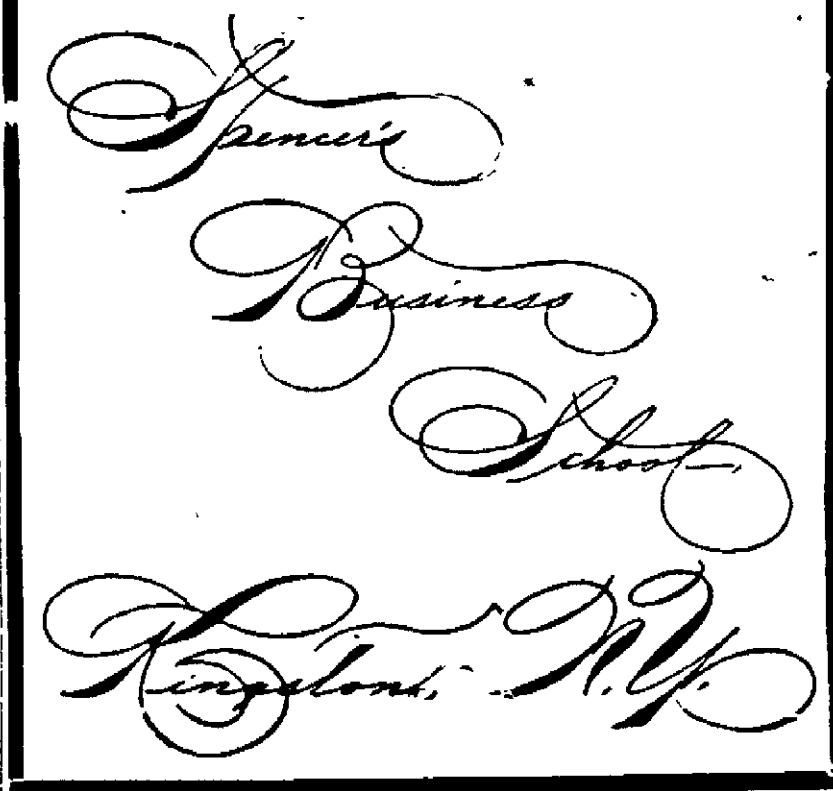 Spencer's
Business
School,
Kingston, N.Y.